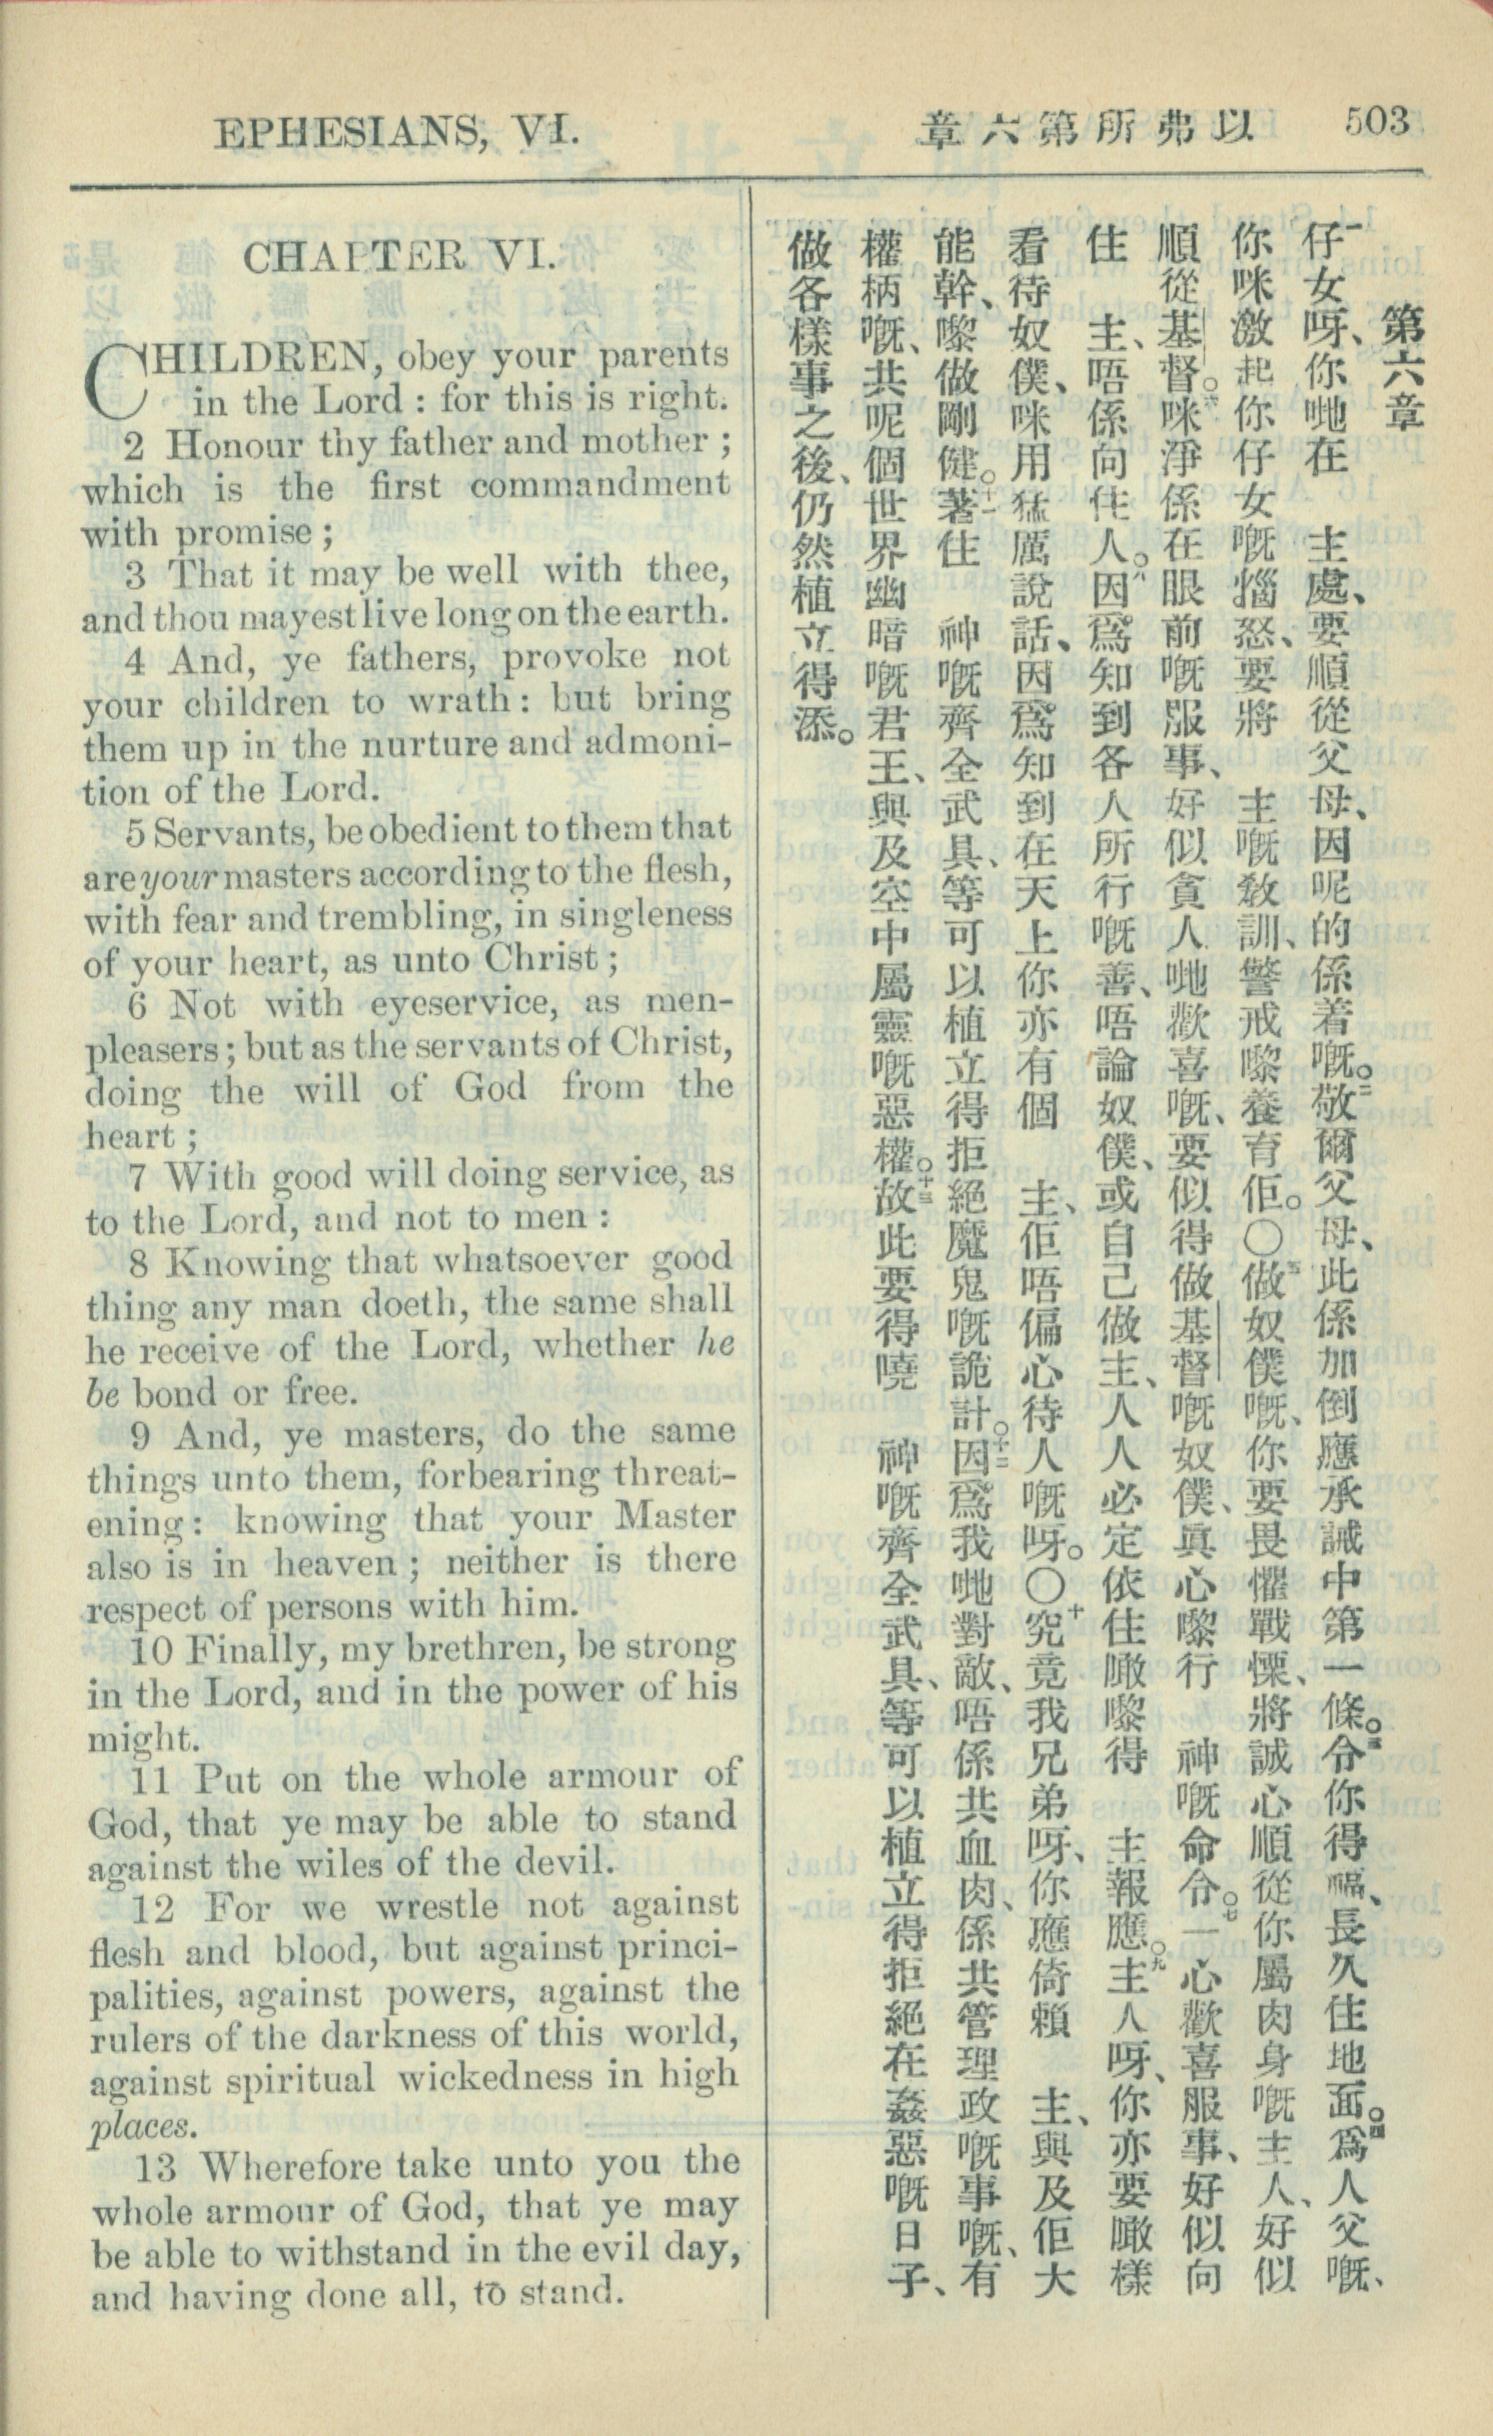 EPHESIANS, VI.
以弗所第六章
503
CHAPTER VI.
CHILDREN, obey your parents
in the Lord : for this is right.
2 Honour thy father and mother ;
which is the first commandment
with promise ;
3 That it may be well with thee,
and thou mayest live long on the earth.
4 And, ye fathers, provoke not
your children to wrath : but bring
them up in the nurture and admoni-
tion of the Lord.
5 Servants, be obedient to them that
are your masters according to the flesh,
with fear and trembling, in singleness
of your heart, as unto Christ ;
6 Not with eyeservice, as men-
pleasers ; but as the servants of Christ,
doing the will of God from the
heart ;
7 With good will doing service, as
to the Lord, and not to men :
8 Knowing that whatsoever good
thing any man doeth, the same shall
he receive of the Lord, whether he
be bond or free.
9 And, ye masters, do the same
things unto them, forbearing threat-
ening : knowing that your Master
also is in heaven ; neither is there
respect of persons with him.
10 Finally, my brethren, be strong
in the Lord, and in the power of his
might.
11 Put on the whole armour of
God, that ye may be able to stand
against the wiles of the devil.
12 For we wrestle not against
flesh and blood, but against princi-
palities, against powers, against the
rulers of the darkness of this world,
against spiritual wickedness in high
places.
13 Wherefore take unto you the
whole armour of God, that ye may
be able to withstand in the evil day,
and having done all, to stand.
第六章
一仔女呀、你哋在 主處、要順從父母、因呢的係着嘅。二敬爾父母、此係加倒應承誡中第一條。三令你得福、長久住地面。四爲人父嘅、
你咪激起你仔女嘅惱怒、要將 主嘅敎訓、警戒嚟養育佢。〇五做奴僕嘅、你要畏懼戰慄、將誠心順從你屬肉身嘅主人、好似
順從基督。六咪淨係在眼前嘅服事、好似貪人哋歡喜嘅、要似得做基督嘅奴僕、眞心嚟行 神嘅命令。七一心歡喜服事、好似向
住 主、唔係向住人。八因爲知到各人所行嘅善、唔論奴僕、或自己做主、人人必定依住噉嚟得 主報應。九主人呀、你亦要噉樣
看待奴僕、咪用猛厲說話、因爲知到在天上你亦有個 主、佢唔偏心待人嘅呀。〇十究竟我兄弟呀、你應倚賴 主、與及佢大
能幹、嚟做剛健。十一著住 神嘅齊全武具、等可以植立得拒絕魔鬼嘅詭計。十二因爲我哋對敵、唔係共血肉、係共管理政嘅事嘅、有
權柄嘅、共呢個世界幽暗嘅君王、與及空中屬靈嘅惡權。十三故此要得嘵 神嘅齊全武具、等可以植立得拒絕在姦惡嘅日子、
做各樣事之後、仍然植立得添。